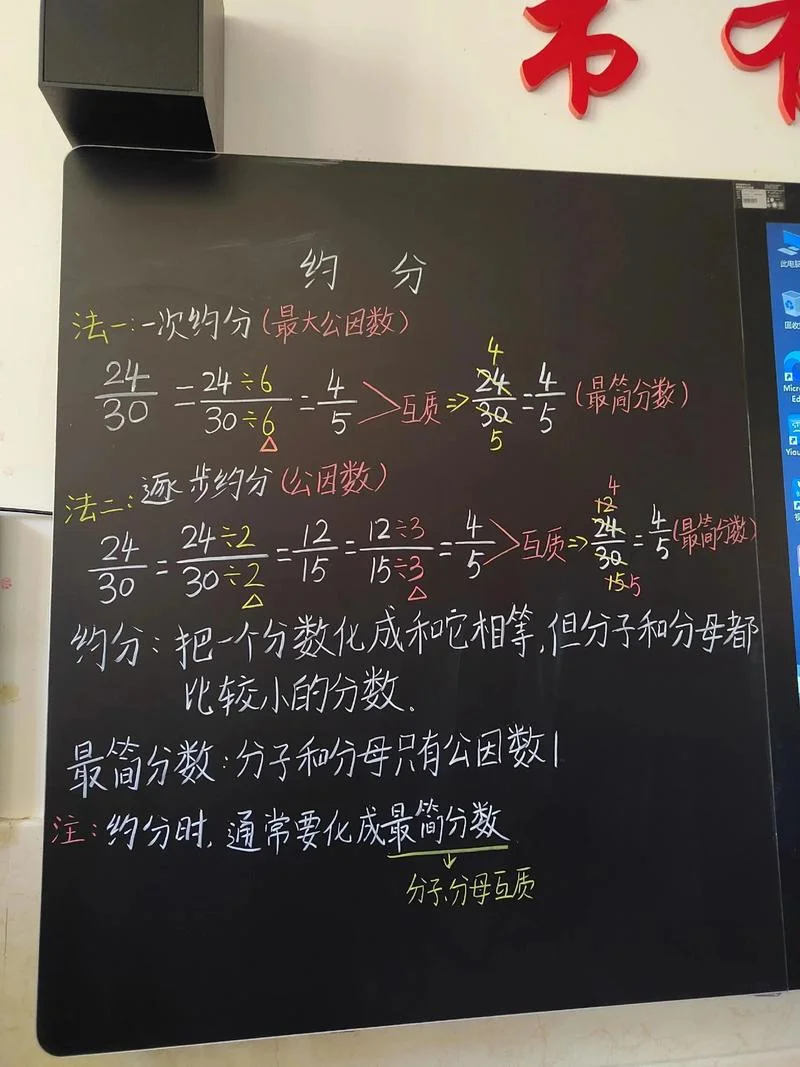 约 分
法一:一次约分(最大公因数)
24/30 = 24÷6/30÷6 = 4/5 > 互质 ⇒ 4 24/30 5 = 4/5 (最简分数)
法二:逐步约分(公因数)
24/30 = 24÷2/30÷2 = 12/15 = 12÷3/15÷3 = 4/5 > 互质 ⇒ 4 12 24/30 15 5 = 4/5 (最简分数)
约分:把一个分数化成和它相等,但分子和分母都
比较小的分数.
最简分数:分子和分母只有公因数1
注:约分时,通常要化成最简分数
↓
分子、分母互质
此电脑